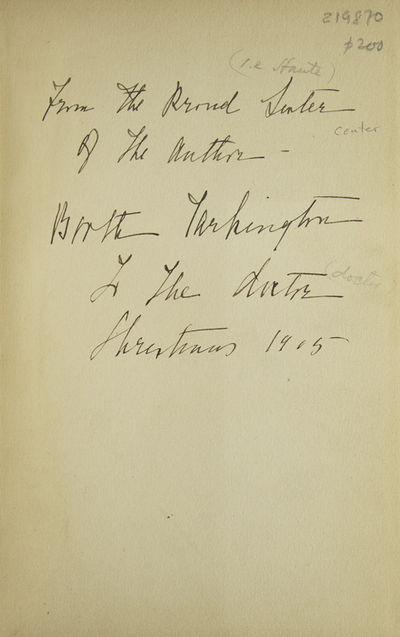 219870
$200
(i.e Haute)
From the Proud Sister
Of the Author –
center
Booth Tarkington
To the doctor
(doctor
Christmas 1905